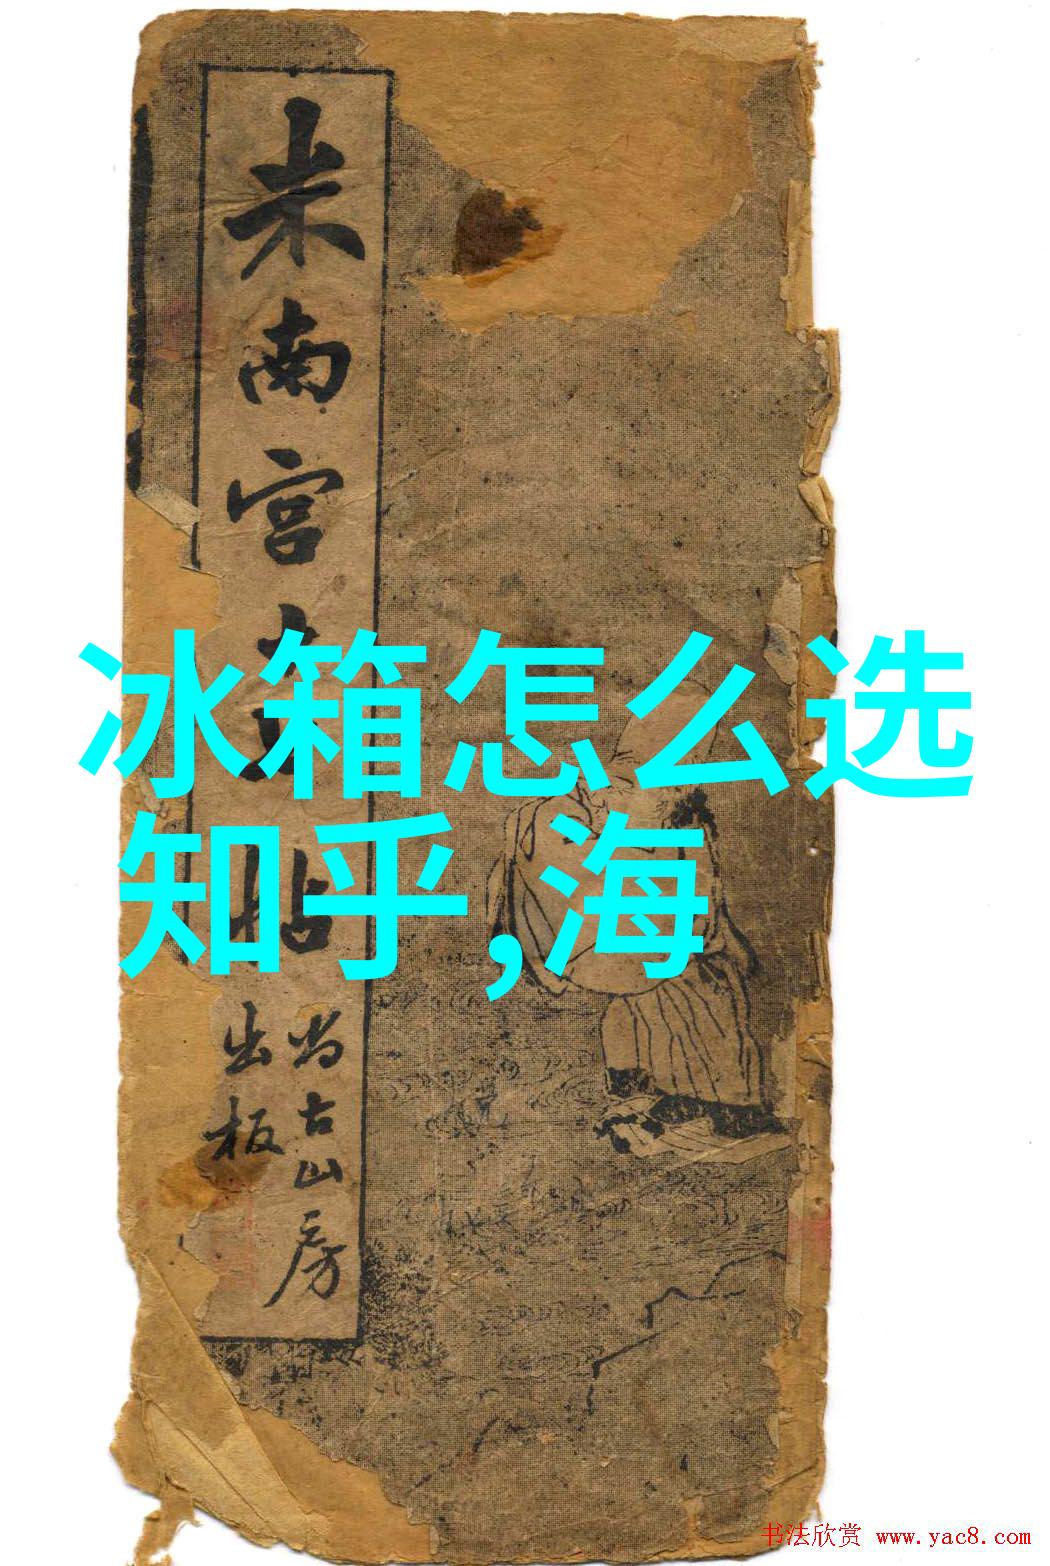 米南宫
帖
尚古山房
出板
冰箱怎么选
知乎,海
书法欣赏 www.yac8.com